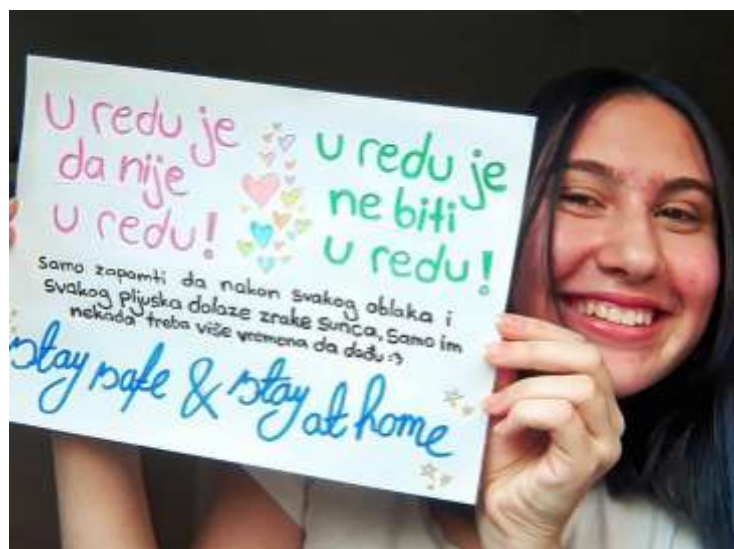 U redu je
da nije
u redu!
u redu je
ne biti
u redu!
Samo zapamti da nakon svakog oblaka i
svakog pljuska dolaze zrake sunca, samo im
nekada treba više vremena da dođu :)
stay safe & stay at home